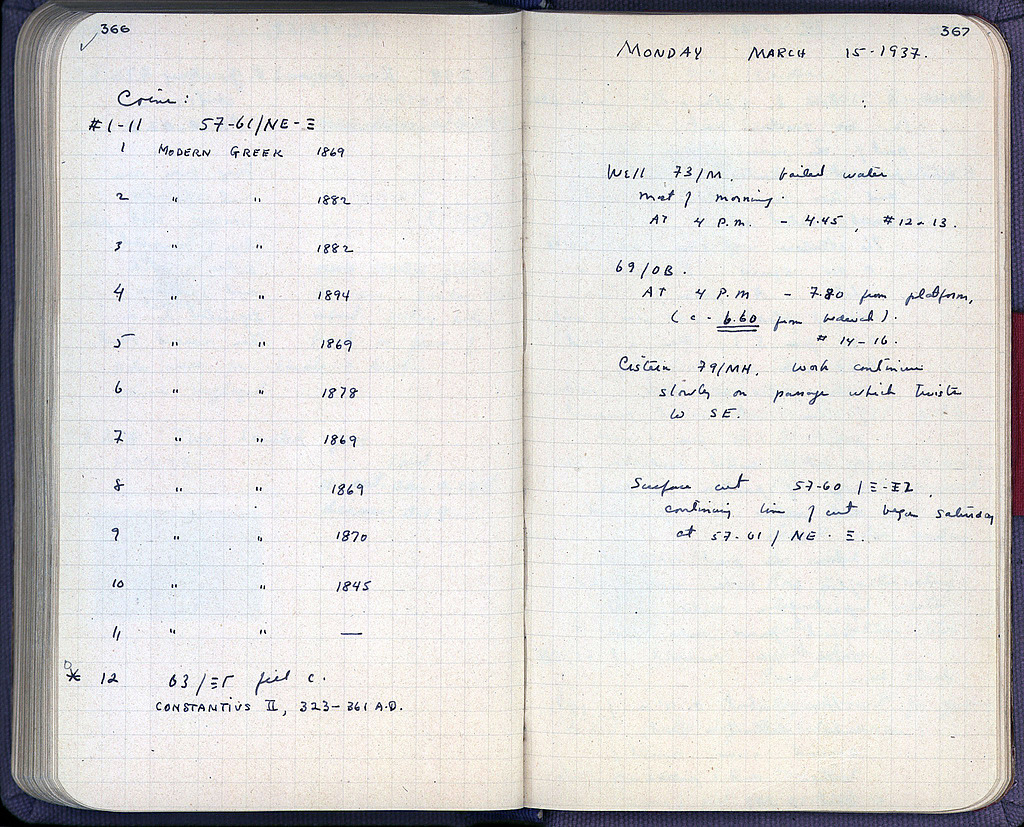 366
Coins:
#1-11 57-61/ΝΕ-Ξ
1 MODERN GREEK 1869
2 " " 1882
3 " " 1882
4 " " 1894
5 " " 1869
6 " " 1878
7 " " 1869
8 " " 1869
9 " " 1870
10 " " 1845
11 " " —
* 12 63/ΞΓ fill c.
CONSTANTIUS II, 323-361 A.D.
367
MONDAY MARCH 15-1937.
Well 73/M. bailed water
most of morning.
AT 4 P.M. - 4.45, #12-13.
69/ΟΒ.
AT 4 P.M - 7.80 from platform,
(c - 6.60 from bedrock).
# 14-16.
Cistern 79/ΜΗ. Work continues
slowly on passage which twists
to SE.
Surface cut 57-60/Ξ-ΞΖ,
continuing line of cut began saturday
at 57-61/ΝΕ-Ξ.